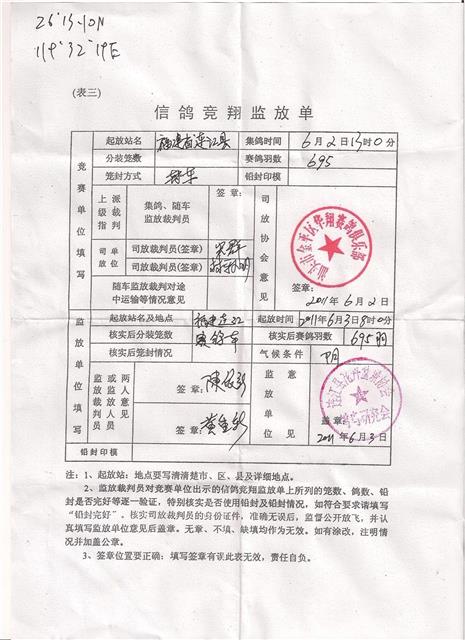 26°13′10N
119°32′19E
(表三)
信鸽竞翔监放单
竞赛单位填写
起放站名 福建省连江县 集鸽时间 6月2日13时0分
分装笼数 赛鸽羽数 695
笼封方式 封车 铅封印模
上级指判 派裁 集鸽、随车监放裁判员 签章:
司放单位 司放裁判员(签章)
司放裁判员(签章)
司放协会意见
汕头市金平区华翔赛鸽俱乐部
签章:
2011年6月2日
随车监放裁判对途中运输等情况意见
监放单位填写
起放站名及地点 福建连江 起放时间 2011年6月3日8时0分
核实后分装笼数 核实后赛鸽羽数 695羽
核实后笼封情况 气候条件 阴
监放裁判员 或监放人员 两人意见 签章:
签章:
监放单位意见
盖章:
2011年6月3日
铅封印模
注:1、起放站:地点要写清清楚市、区、县及详细地点。
2、监放裁判员对竞赛单位出示的信鸽竞翔监放单上所列的笼数、鸽数、铅
封是否完好等逐一验证,特别核实是否使用铅封及铅封情况,如符合要求请填写
“铅封完好”。核实司放裁判员的身份证件,准确无误后,监督公开放飞,并认
真填写监放单位意见后盖章。无章、不填、缺填均作为无效。如有涂改,注明情
况并加盖公章。
3、签章位置要正确:填写签章有误此表无效,责任自负。